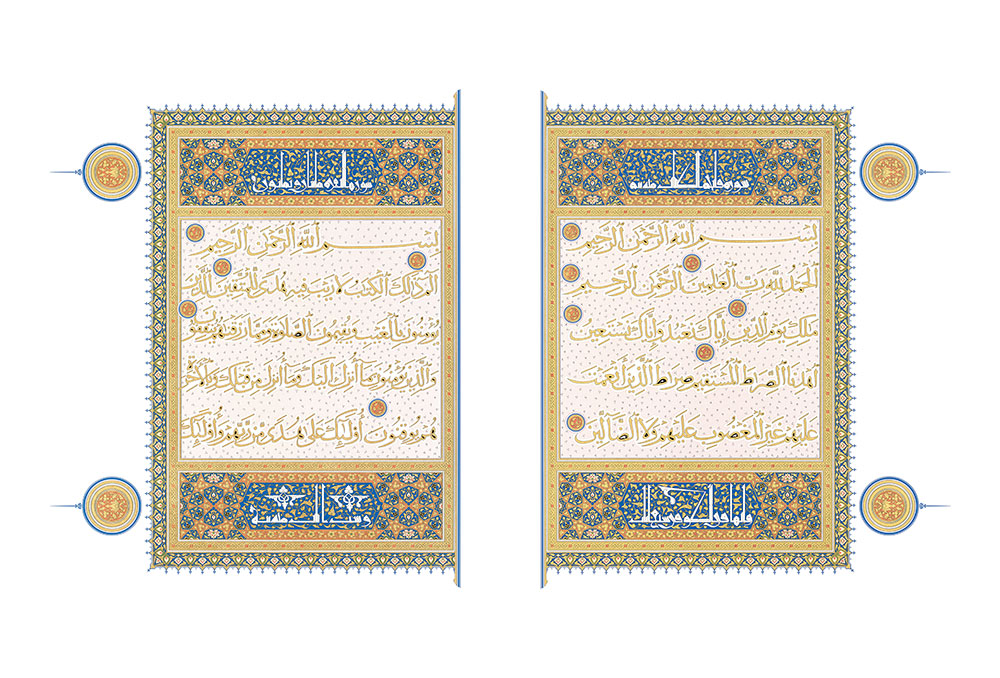 سورة فاتحة
بسم الله الرحمن الرحيم
الحمد لله رب العالمين الرحمن الرحيم
ملك يوم الدين إياك نعبد وإياك نستعين
اهدنا الصراط المستقيم صراط الذين أنعمت
عليهم غير المغضوب عليهم ولا الضالين
بسم الله الرحمن الرحيم
الم ذلك الكتب لا ريب فيه هدى للمتقين الذين
يؤمنون بالغيب ويقيمون الصلوة ومما رزقنهم ينفقون
والذين يؤمنون بما أنزل إليك وما أنزل من قبلك وبالآخرة
هم يوقنون أولئك على هدى من ربهم وأولئك